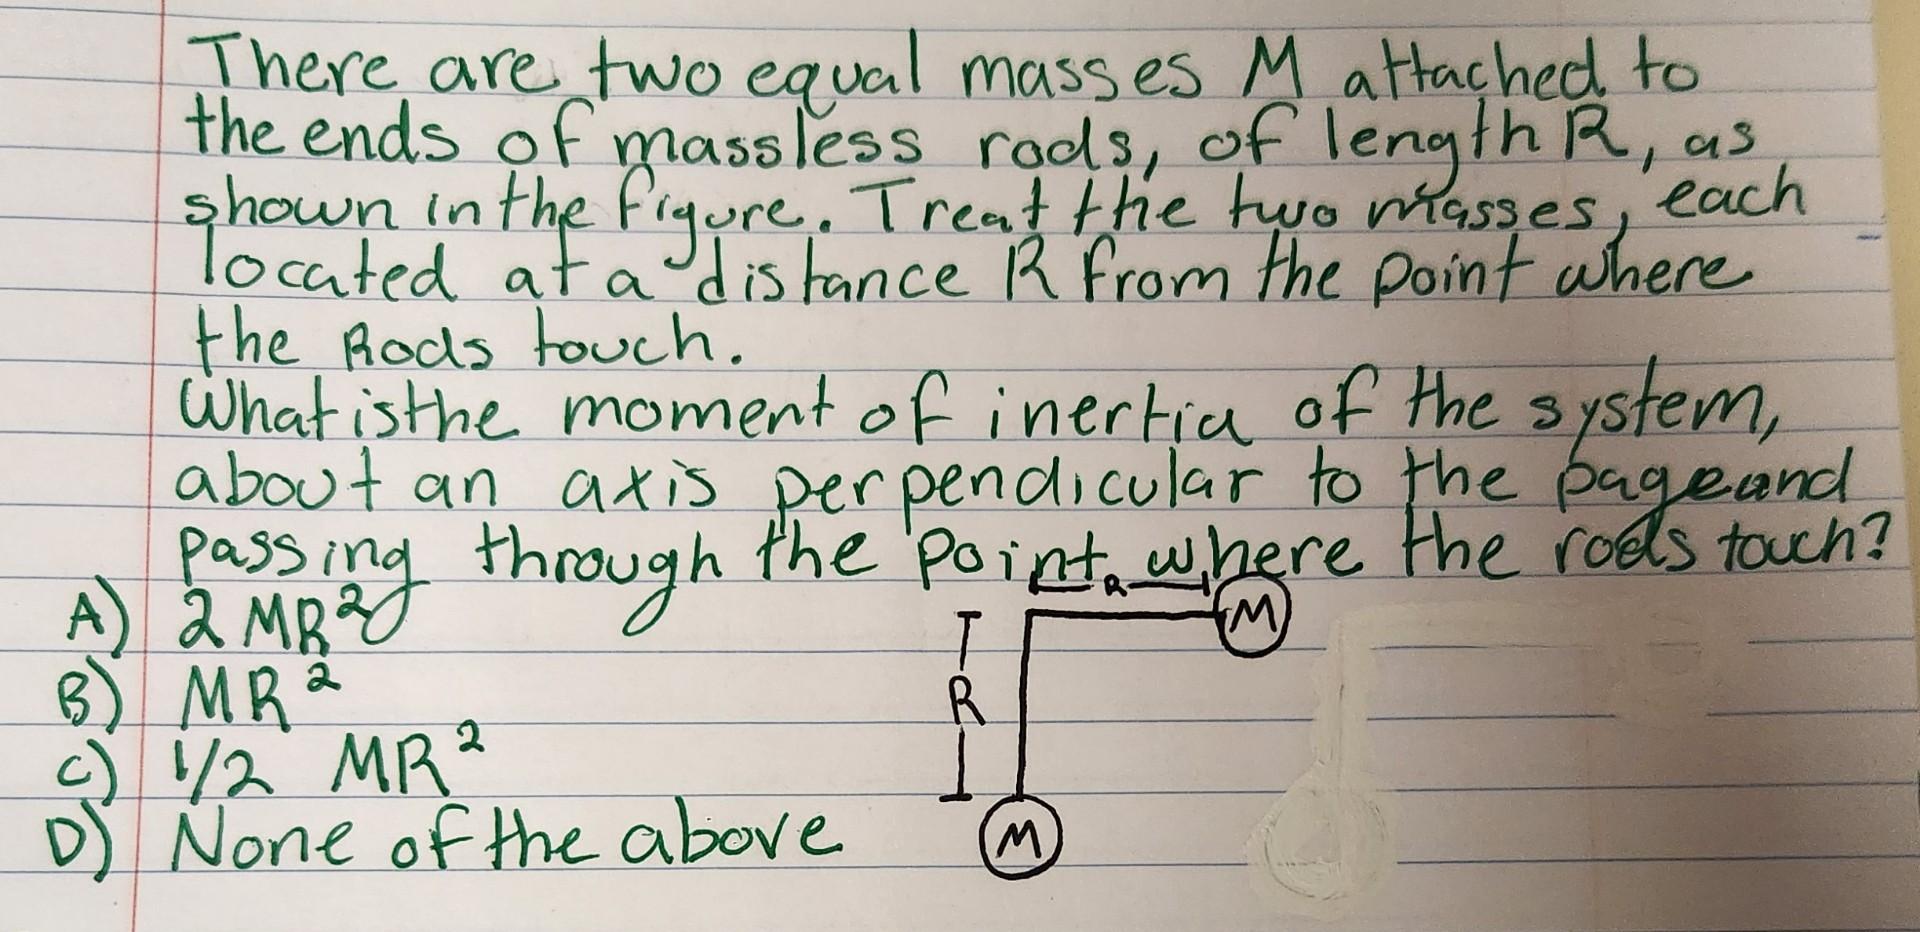 There are two equal masses M attached to
the ends of massless rods, of length R, as
shown in the figure. Treat the two masses, each
located at a distance R from the point where
the Rods touch.
What is the moment of inertia of the system,
about an axis perpendicular to the page and
passing through the point where the rods touch?
A) 2 MR²
B) MR²
C) 1/2 MR²
D) None of the above
R
M
R
M